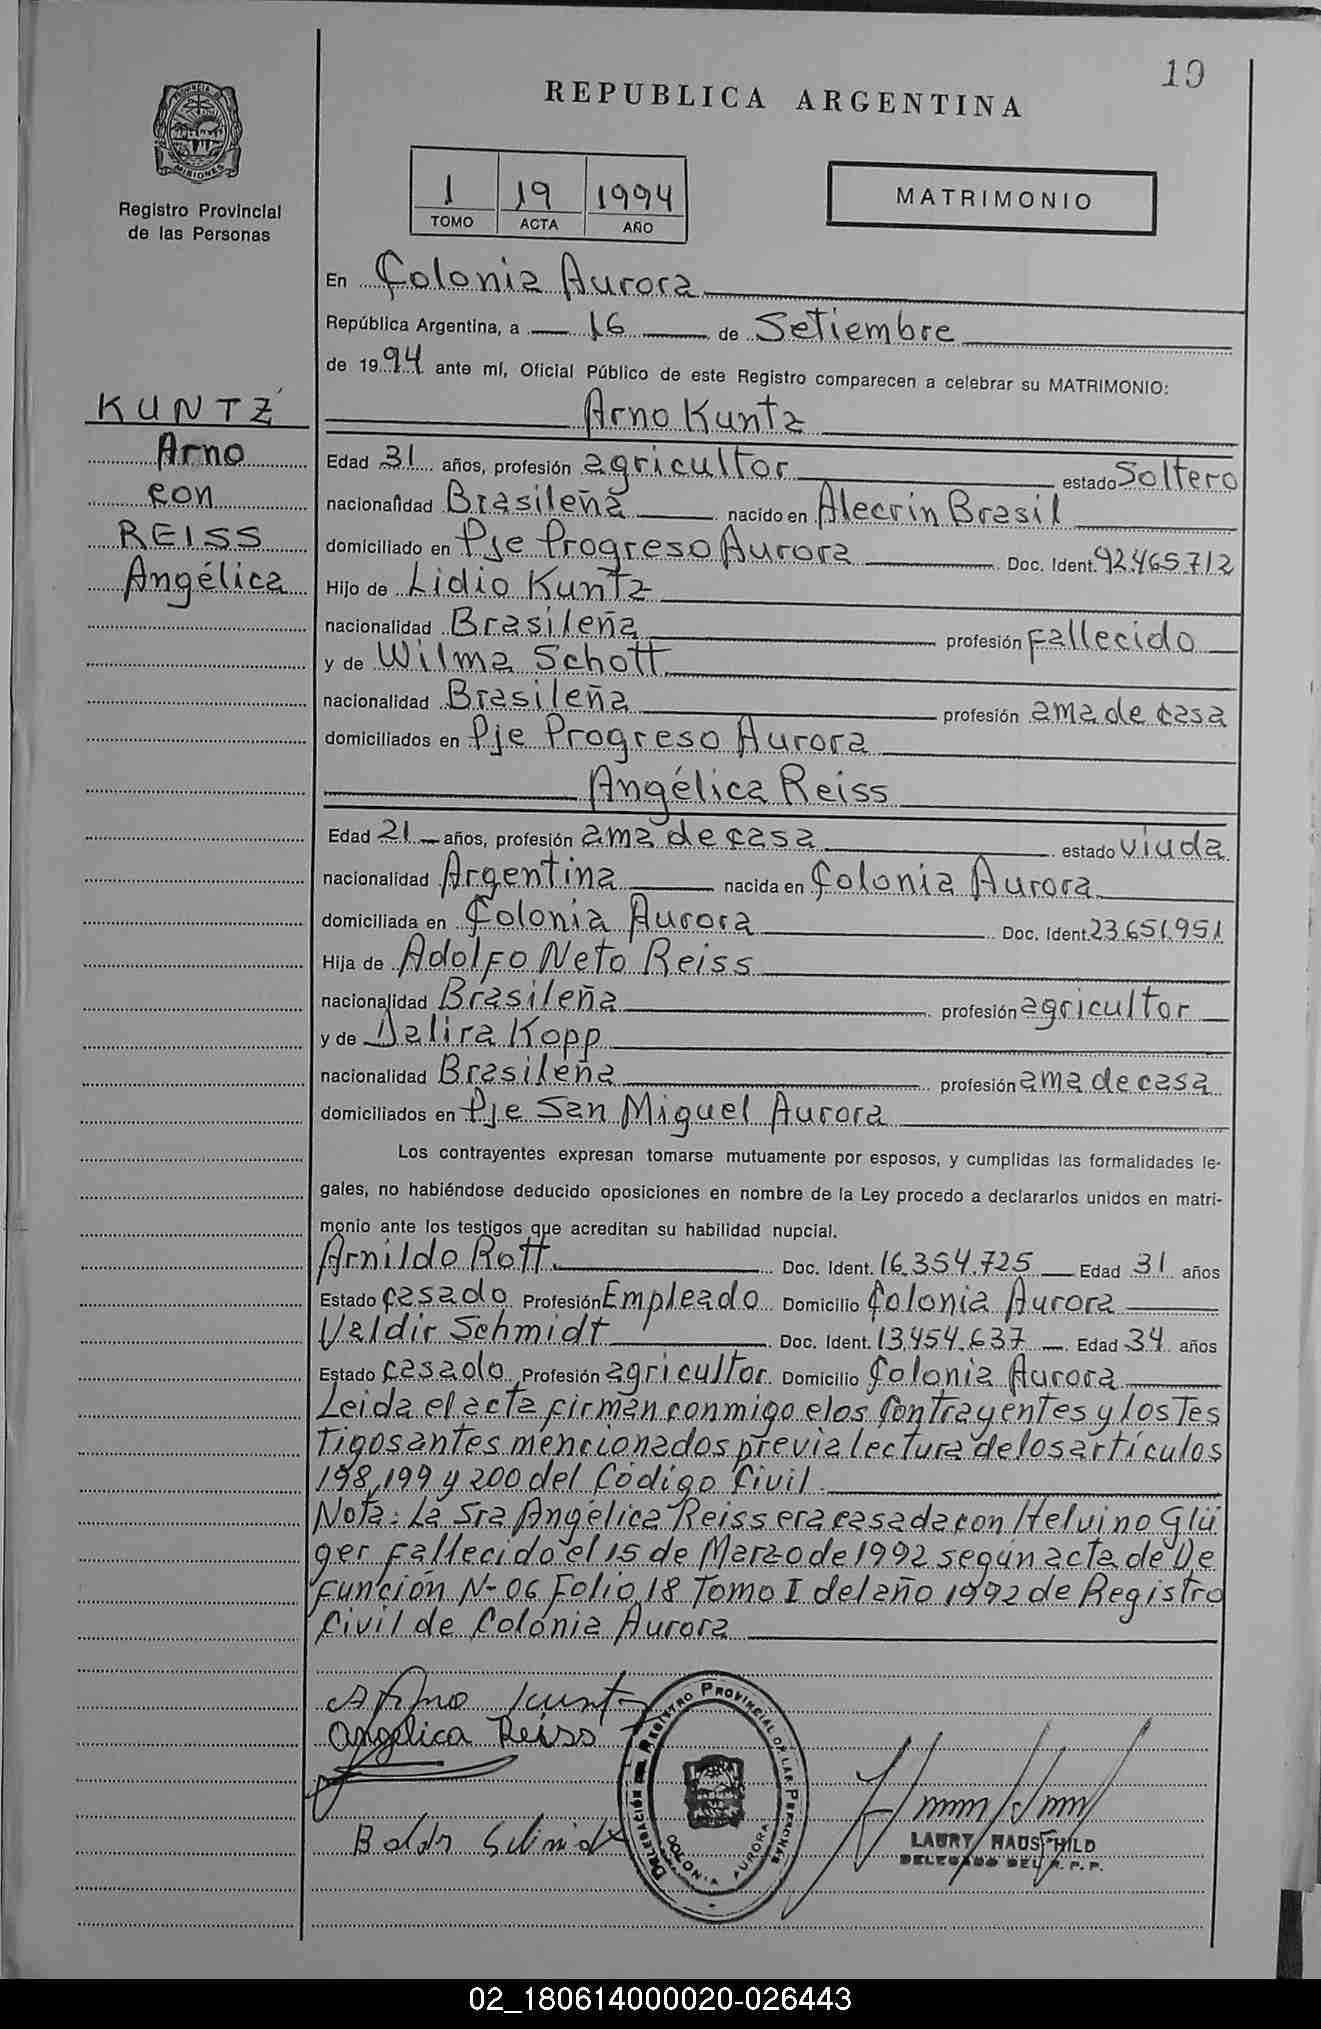 19
REPUBLICA ARGENTINA
PROVINCIA D
MISIONES
Registro Provincial
de las Personas
1 19 1994
TOMO ACTA AÑO
MATRIMONIO
En Colonia Aurora
República Argentina, a 16 de Setiembre
de 1994 ante mí, Oficial Público de este Registro comparecen a celebrar su MATRIMONIO:
KUNTZ
Arno
con
REISS
Angélica
Arno Kuntz
Edad 31 años, profesión agricultor estado Soltero
nacionalidad Brasileña nacido en Alecrin Brasil
domiciliado en Pje Progreso Aurora Doc. Ident. 92.465.712
Hijo de Lidio Kuntz
nacionalidad Brasileña profesión fallecido
y de Wilma Schott
nacionalidad Brasileña profesión ama de casa
domiciliados en Pje Progreso Aurora
Angélica Reiss
Edad 21 años, profesión ama de casa estado viuda
nacionalidad Argentina nacida en Colonia Aurora
domiciliada en Colonia Aurora Doc. Ident. 23.651.951
Hija de Adolfo Neto Reiss
nacionalidad Brasileña profesión agricultor
y de Dalira Kopp
nacionalidad Brasileña profesión ama de casa
domiciliados en Pje San Miguel Aurora
Los contrayentes expresan tomarse mutuamente por esposos, y cumplidas las formalidades le-
gales, no habiéndose deducido oposiciones en nombre de la Ley procedo a declararlos unidos en matri-
monio ante los testigos que acreditan su habilidad nupcial.
Arnildo Rott Doc. Ident. 16.354.725 Edad 31 años
Estado casado Profesión Empleado Domicilio Colonia Aurora
Valdir Schmidt Doc. Ident. 13.454.637 Edad 34 años
Estado casado Profesión agricultor Domicilio Colonia Aurora
Leida el acta firman conmigo elos Contrayentes y los Tes
tigos antes mencionados previa lectura de los artículos
198, 199 y 200 del Código Civil
Nota: La Sra Angélica Reiss era casada con Helvino Glü
ger fallecido el 15 de Marzo de 1992 según acta de De
función N- 06 Folio 18 Tomo I del año 1992 de Registro
Civil de Colonia Aurora
Arno Kuntz
Angelica Reiss
DELEGACIÓN DEL REGISTRO PROVINCIAL DE LAS PERSONAS
COLONIA AURORA
LAURY HAUSCHILD
DELEGADO DEL R.P.P.
02_180614000020-026443